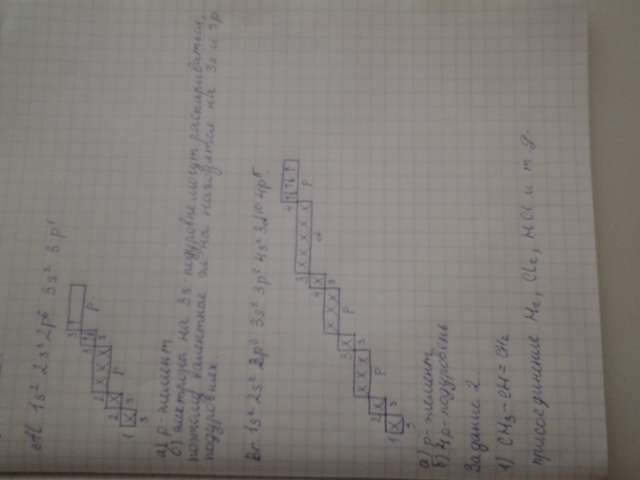 Al 1s² 2s² 2p⁶ 3s² 3p¹
1 s 2 s 2 p 3 s 3 p
а) p-элемент
б) электроны на 3s-подуровне могут распариваться,
поэтому валентные эл-на находятся на 3s и 3p
подуровнях
Br 1s² 2s² 2p⁶ 3s² 3p⁶ 4s² 3d¹⁰ 4p⁵
1 s 2 s p 3 s p 4 s 3 d 4 p
а) p-элемент
б) 4p-подуровень
Задание 2
1) CH₃-CH=CH₂
присоединение H₂, Cl₂, HCl и т.д.